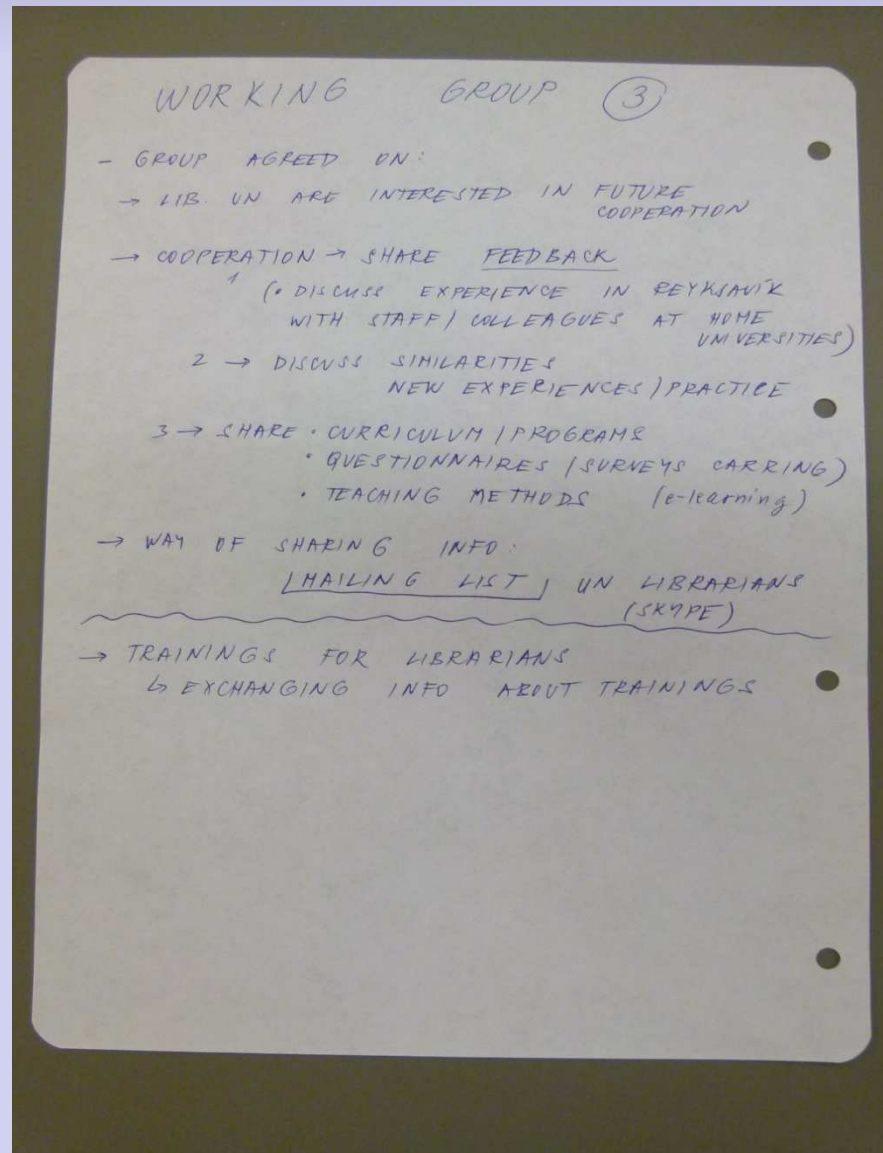 WORKING GROUP 3
- GROUP AGREED ON:
→ LIB. UN ARE INTERESTED IN FUTURE
COOPERATION
→ COOPERATION → SHARE FEEDBACK
1 (• DISCUSS EXPERIENCE IN REYKSAVÍK
WITH STAFF / COLLEAGUES AT HOME
UNIVERSITIES)
2 → DISCUSS SIMILARITIES
NEW EXPERIENCES / PRACTICE
3 → SHARE • CURRICULUM / PROGRAMS
• QUESTIONNAIRES (SURVEYS CARRING)
• TEACHING METHODS (e-learning)
→ WAY OF SHARING INFO:
MAILING LIST UN LIBRARIANS
(SKYPE)
→ TRAININGS FOR LIBRARIANS
↳ EXCHANGING INFO ABOUT TRAININGS